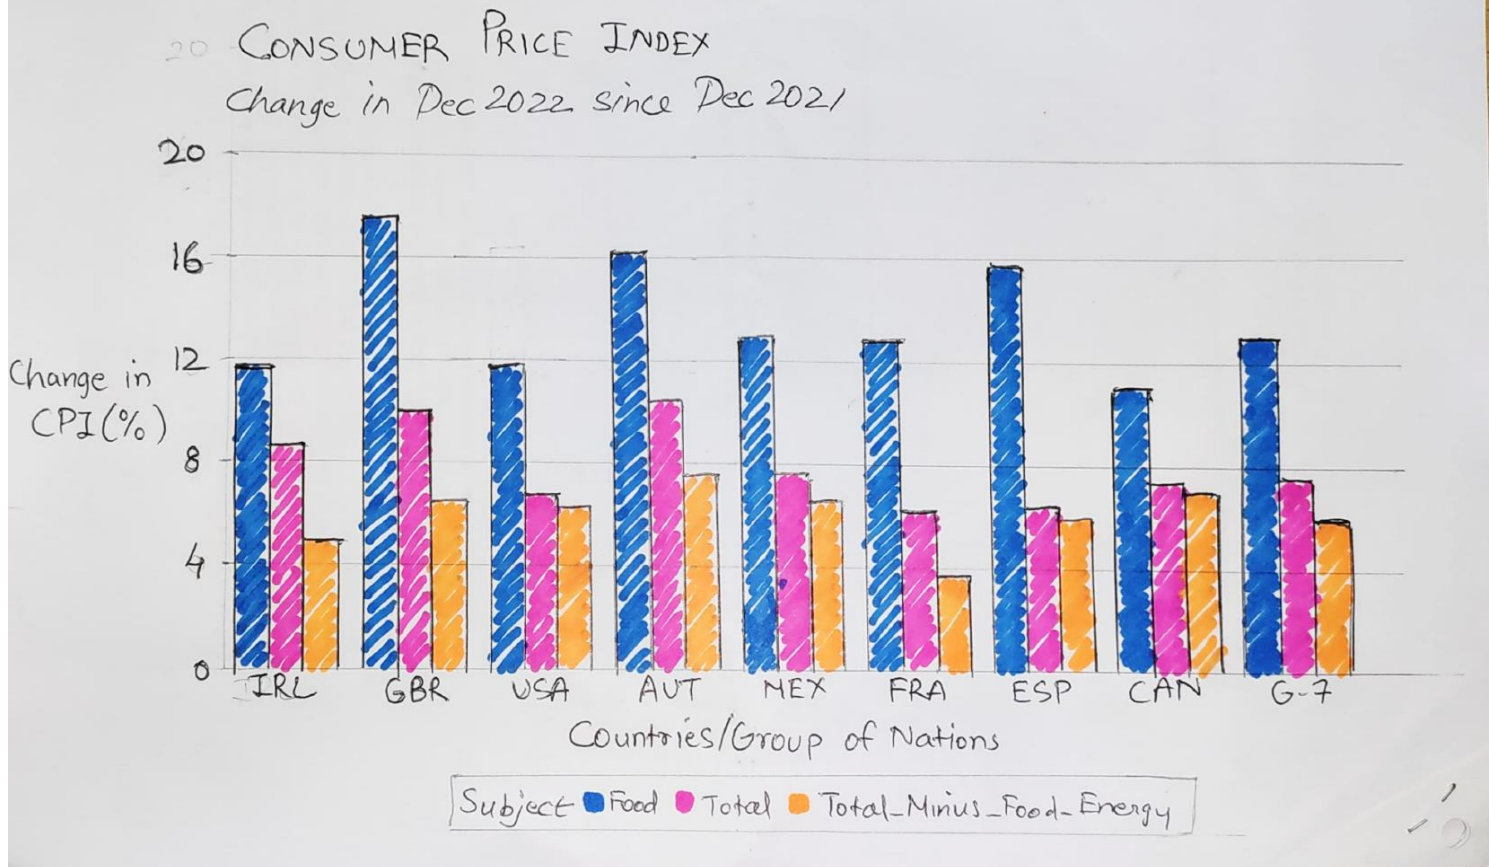 20 CONSUMER PRICE INDEX
Change in Dec 2022 since Dec 2021
20
16
12
8
4
0
Change in
CPI(%)
IRL GBR USA AUT MEX FRA ESP CAN G-7
Countries/Group of Nations
Subject Food Total Total_Minus_Food_Energy